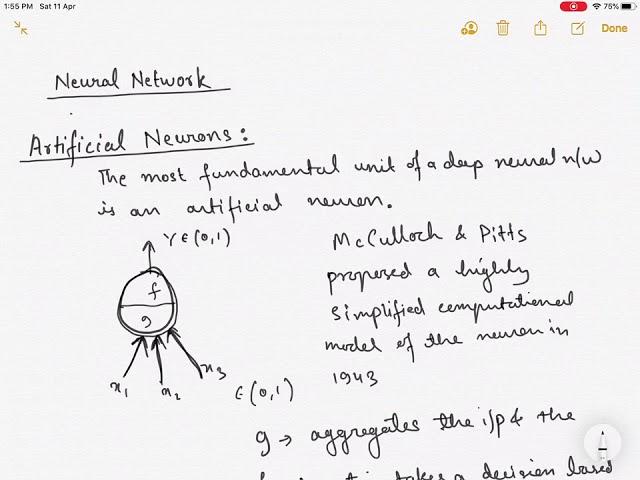 1:55 PM Sat 11 Apr
75%
Done
Neural Network
Artificial Neurons:
The most fundamental unit of a deep neural n/w
is an artificial neuron.
Y ∈ (0,1)
f
g
x1 x2 x3 ∈ (0,1)
McCulloch & Pitts
proposed a highly
simplified computational
model of the neuron in
1943
g → aggregates the i/p & the
takes a decision based